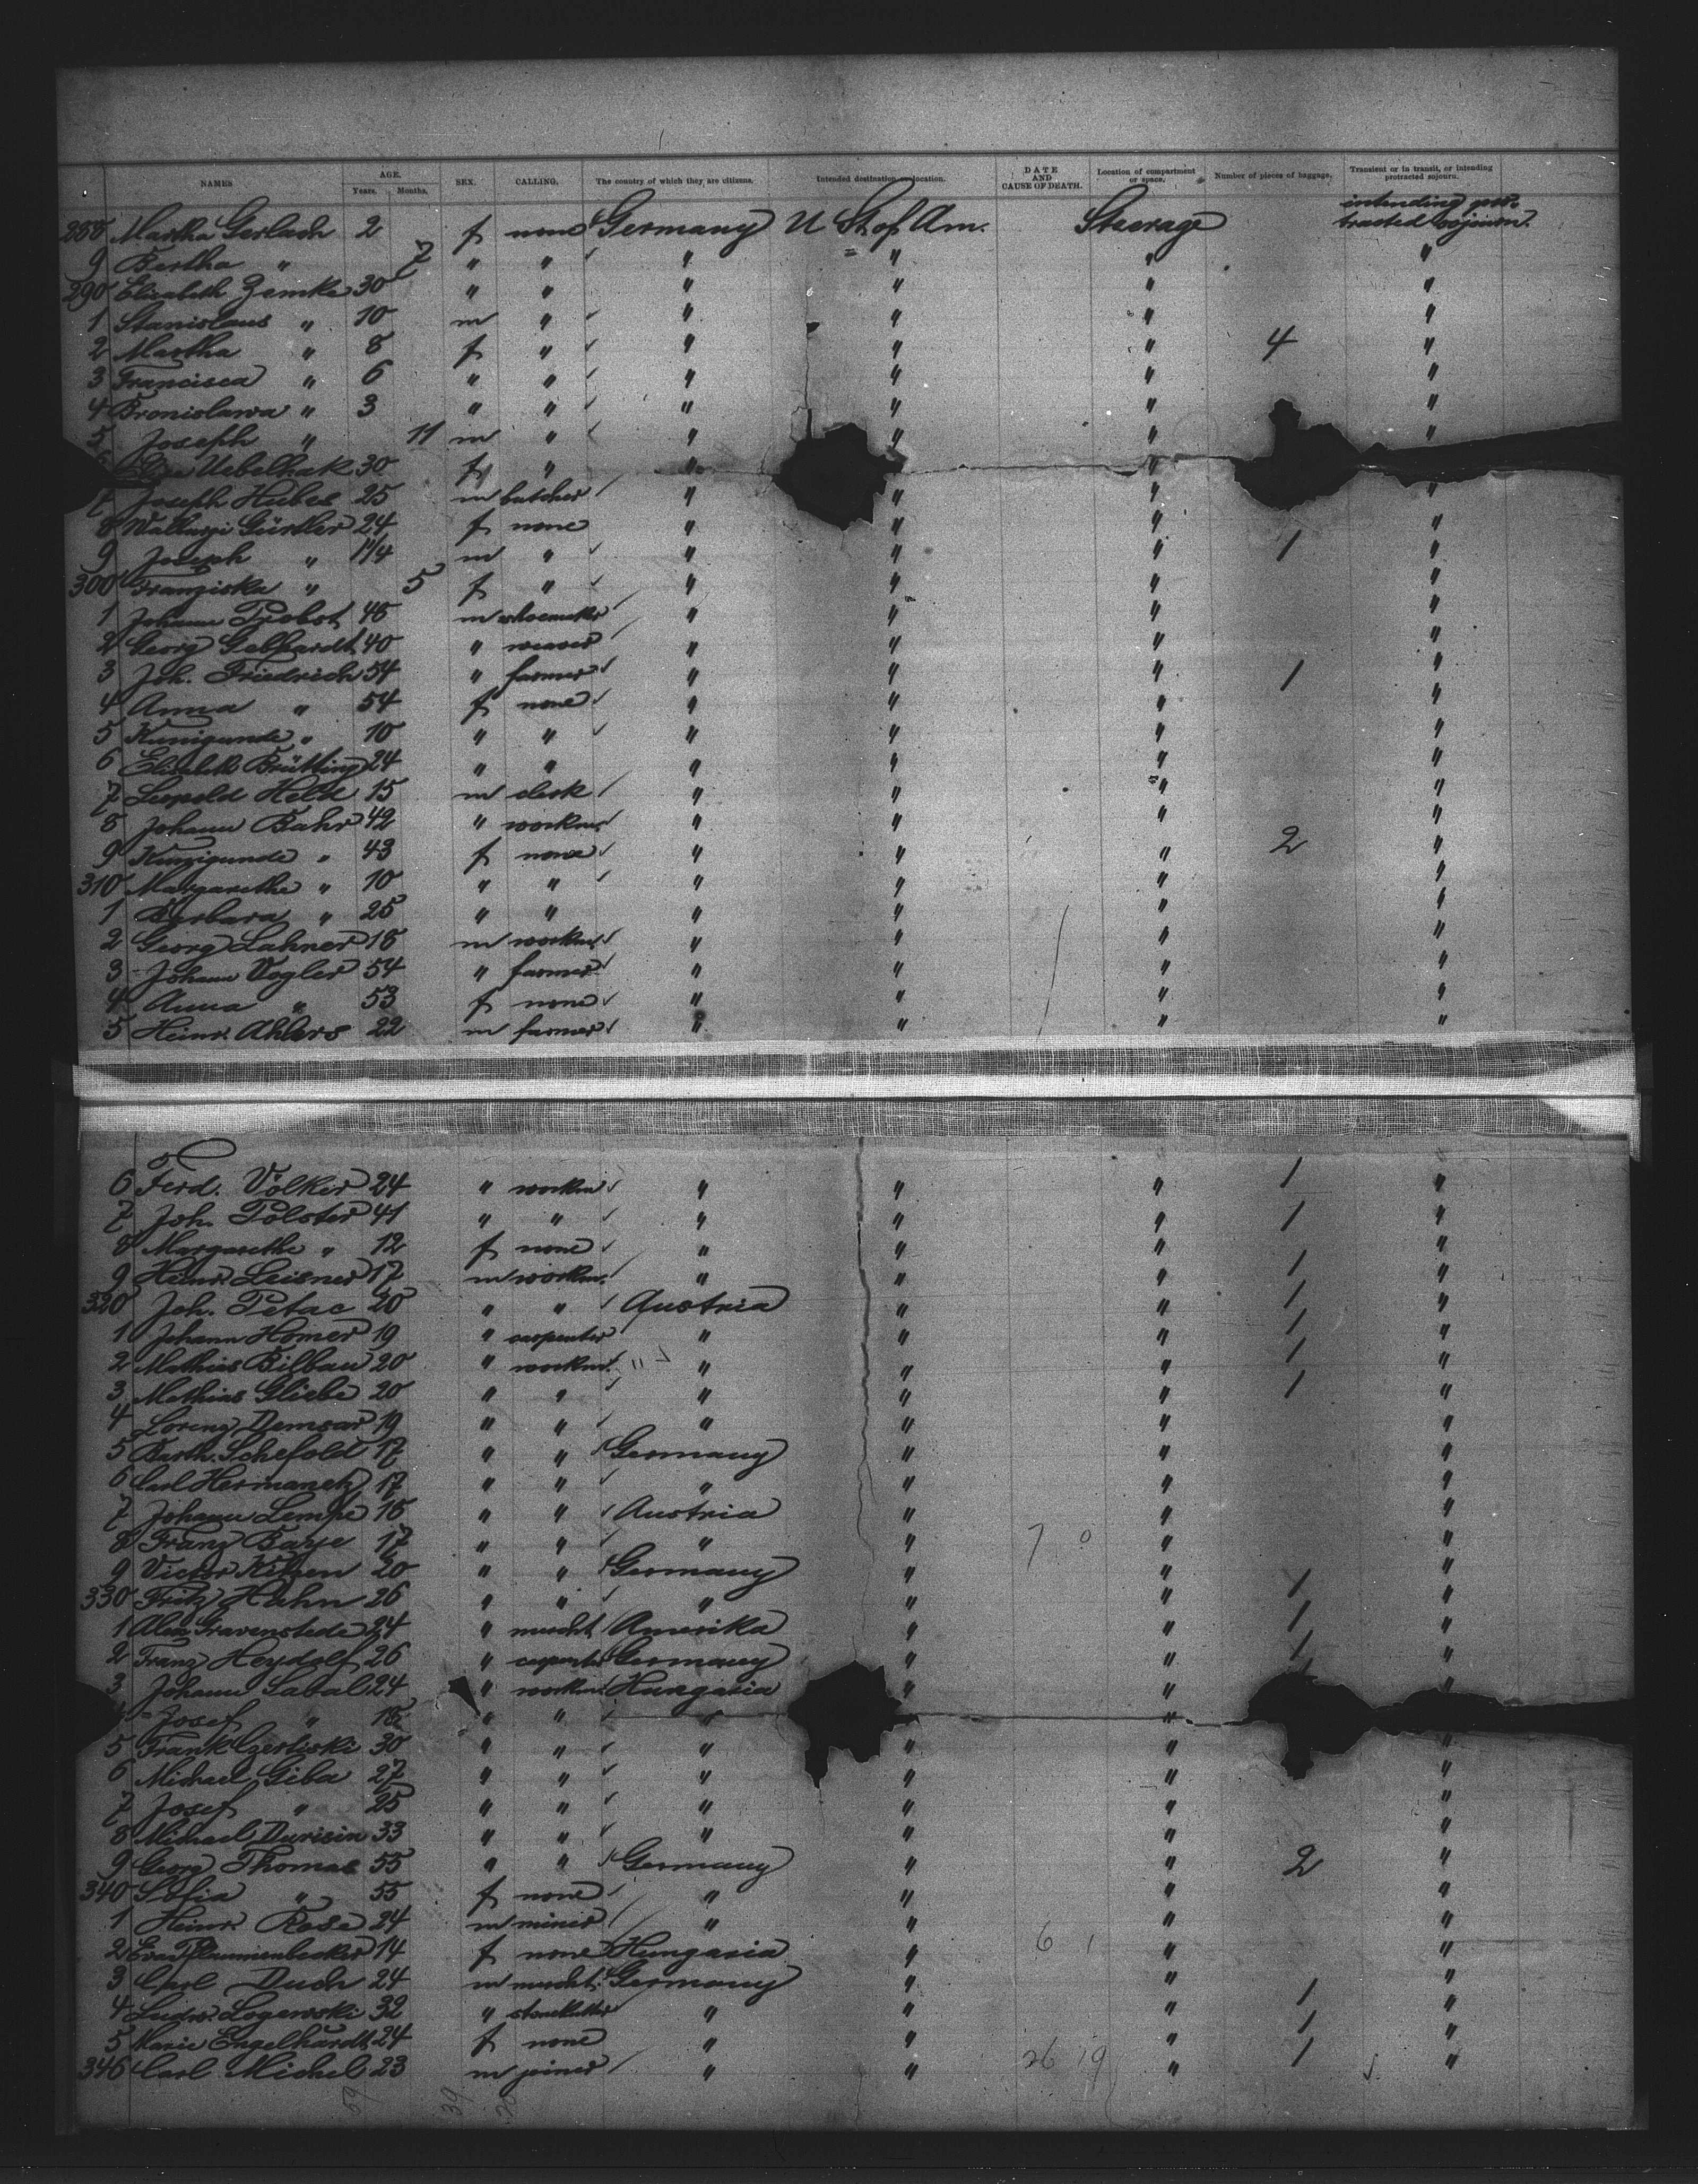 NAMES AGE. Years. Months. SEX. CALLING. The country of which they are citizens. Intended destination or location. DATE AND CAUSE OF DEATH. Location of compartment or space. Number of pieces of baggage. Transient or in transit, or intending protracted sojourn.
288 Martha Gerlach 2 f none Germany U St of Am. Steerage intending protracted sojourn.
9 Bertha " 7 " " " " " "
290 Elisabeth Zemke 30 " " " " " "
1 Stanislaus " 10 m " " " " "
2 Martha " 8 f " " " " 4 "
3 Francisca " 6 " " " " " "
4 Bronislawa " 3 " " " " " "
5 Joseph " 11 m " " " " "
Uebelhak 30 f " " " "
7 Joseph Huber 25 m butcher " " " "
8 Walburgi Gürtler 24 f none " " " "
9 Joseph " 11/4 m " " " " 1 "
300 Franziska " 5 f " " " " "
1 Johann Probst 48 m shoemaker " " " "
2 Georg Gebhardt 40 " weaver " " " "
3 Joh. Friedrich 54 " farmer " " " 1 "
4 Anna " 54 f none " " " "
5 Kunigunde " 10 " " " " " "
6 Elisabeth Brütting 24 " " " " " "
7 Leopold Held 15 m clerk " " " "
8 Johann Bahr 42 " workm. " " " "
9 Kunigunde " 43 f none " " " 2 "
310 Margarethe " 10 " " " " " "
1 Barbara " 25 " " " " " "
2 Georg Lahner 18 m workm. " " " "
3 Johann Vogler 54 " farmer " " " "
4 Anna " 53 f none " " " "
5 Heinr. Ahlers 22 m farmer " " " "
6 Ferd. Völker 24 " workm " " " 1 "
7 Joh. Polster 41 " " " " " 1 "
8 Margarethe " 12 f none " " " "
9 Heinr. Leisner 17 m workm. " " " 1 "
320 Joh. Petac 20 " " Austria " " 1 "
1 Johann Homer 19 " carpenter " " " 1 "
2 Mathias Bilbau 20 " workm. " " " 1 "
3 Mathias Gliebe 20 " " " " " 1 "
4 Lorenz Demsar 19 " " " " " "
5 Barth. Schefold 17 " " Germany " " "
6 Carl Hermanek 17 " " " " " "
7 Johann Lempe 18 " " Austria " " "
8 Franz Barje 17 " " " " " "
9 Victor 20 " " Germany " " "
330 Fritz Hahn 26 " " " " " 1 "
1 Alex. Gravenstede 24 " mercht. Amerika " " 1 "
2 Franz Heydolf 26 " carpenter Germany " " 1 "
3 Johann Sabal 24 " workm. Hungaria " " "
Josef " 18 " " " " "
5 Frank Czerliski 30 " " " " " "
6 Michael Giba 27 " " " " " "
7 Josef " 25 " " " " " "
8 Michael Durisin 33 " " " " " "
9 Georg Thomas 55 " " Germany " " 2 "
340 Sofia " 55 f none " " " "
1 Heinr. Rose 24 m miner " " " "
2 Eva Pflaumenbecker 14 f none Hungaria " 6 1 " "
3 Carl Duch 24 m mercht. Germany " " 1 "
4 Ludw. Logewski 32 " stonecutter " " " 1 "
5 Marie Engelhardt 24 f none " " " 1 "
346 Carl Michel 23 m joiner " " 26 19 " "